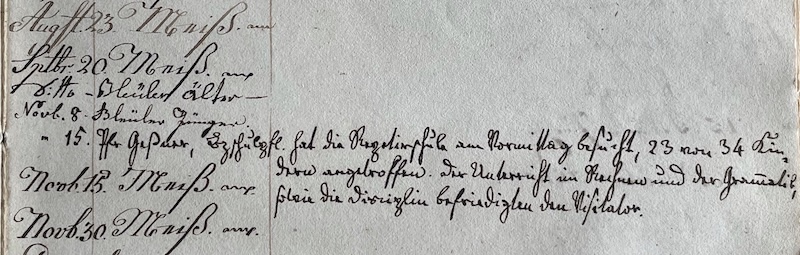 Augst. 23. Meiß.
Sptbr. 20. Meiß.
ditto – Bleuler Älter –
Novb. 8. Bleuler Jünger.
" 15. Pfr Geßner, Bzschulpfl. hat die Repetirschule am Vormittag besucht, 23 von 34 Kin-
dern angetroffen. Der Unterricht im Rechnen und der Grammatik,
Novb. 15. Meiß.
sowie die Disciplin befriedigten den Visitator.
Novb. 30. Meiß.